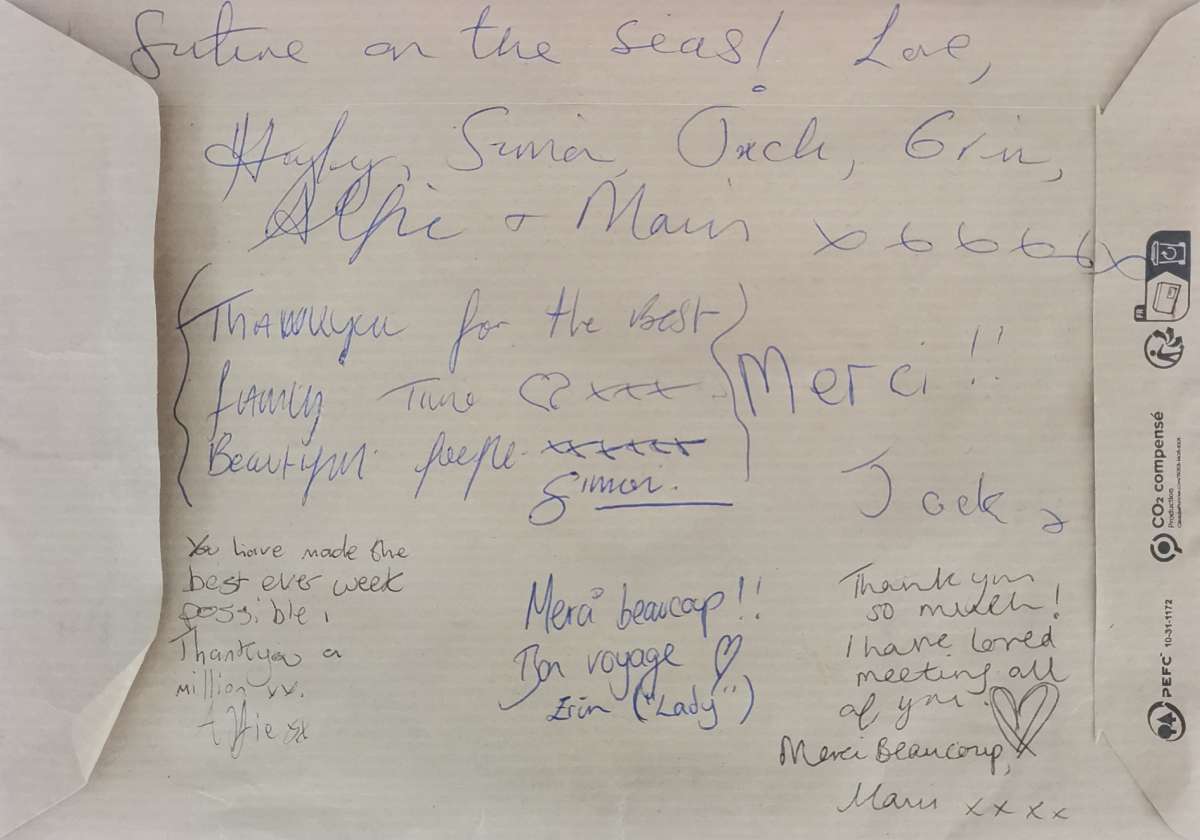 future on the seas! Love,
Hayley, Simon, Jack, Erin,
Alfie + Maris x x x x x x
Thankyou for the Best
family Time ♡ xxx
Beautiful people. xxxxxx
Simon.
Merci!!
Jack x
You have made the
best ever week
possible,
Thankyou a
million xx.
Alfie xx
Merci beaucoup!!
Bon voyage ♡
Erin ("Lady")
Thank you
so much!
I have loved
meeting all
of you.
Merci Beaucoup, x
Maris x x x x
FR
CO₂ compensé
Production
PEFC™ 10-31-1172